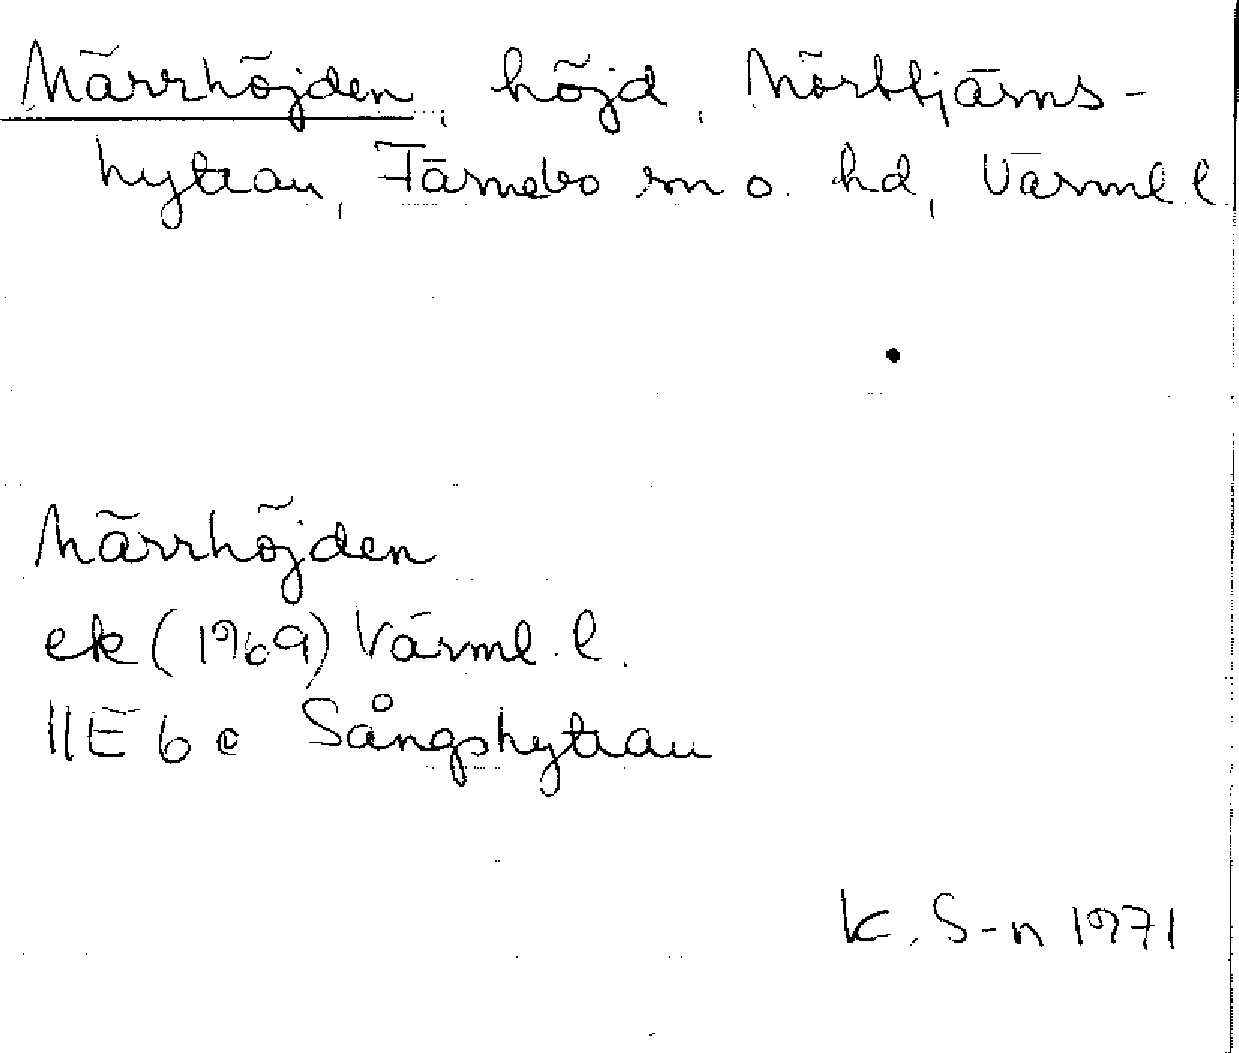 Märrhöjden, höjd, Mörttjärns-
hyttan, Färnebo sn o. hd, Värml. l
Märrhöjden
ek (1969) Värml. l.
11E 6 c Sångshyttan
K. S-n 1971